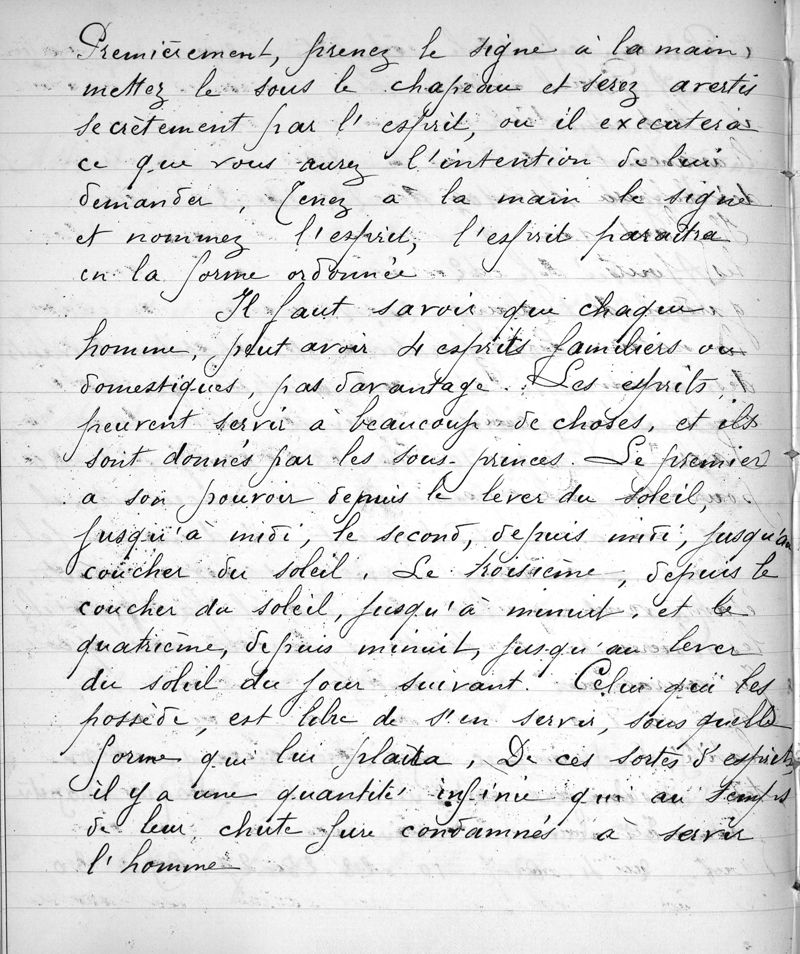 Premièrement, prenez le signe à la main,
mettez le sous le chapeau et serez avertis
secrètement par l'esprit, ou il executera
ce que vous aurez l'intention de lui
demander, Tenez a la main le signe
et nommez l'esprit, l'esprit paraitra
en la forme ordonnée
Il faut savoir que chaque
homme, peut avoir 4 esprits familiers ou
domestiques, pas davantage. Les esprits,
peuvent servir à beaucoup de choses, et ils
sont donnés par les sous-princes. Le premier
a son pouvoir depuis le lever du soleil,
jusqu'à midi, le second, depuis midi, jusqu'au
coucher du soleil. Le troisième, depuis le
coucher du soleil, jusqu'à minuit. et le
quatrième, depuis minuit, jusqu'au lever
du soleil du jour suivant. Celui qui les
possède, est libre de s'en servir, sous quelle
forme qui lui plaita, De ces sortes d'esprits,
il y a une quantité infinie qui au temps
de leur chute fure condamnés a servir
l'homme